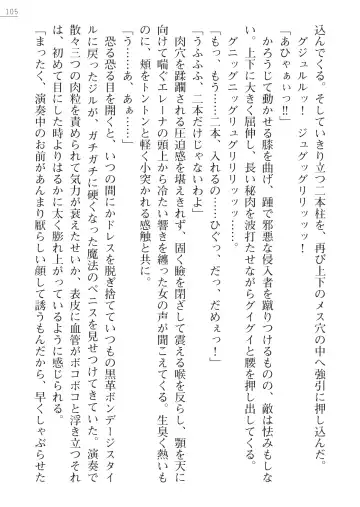 105
込んでくる。そしていきり立つ二本柱を、再び上下のメス穴の中へ強引に押し込んだ。
グジュルルッ！ ジュグッグリリッッ！
「あひゃぁいっ!!」
かろうじて動かせる膝を曲げ、踵で邪悪な侵入者を蹴りつけるものの、敵は怯みもしな
い。上下に大きく屈伸し、長い秘肉を波打たせながらグイグイと腰を押し出してくる。
グニッグニッグリュグリリリリッッッ……。
「もっ、もう……二本、入れるの……ひぐっ、だっ、だめぇっ！」
「うふふふ、二本だけじゃないわよ」
肉穴を蹂躙される圧迫感を堪えきれず、固く瞼を閉ざして震える喉を反らし、顎を天に
向けて喘ぐエレーナの頭上から冷たい響きを纏った女の声が聞こえてくる。生臭く熱いも
のに、頬をトントンと軽く小突かれる感触と共に。
「う……あ、あぁ……」
恐る恐る目を開くと、いつの間にかドレスを脱ぎ捨てていつもの黒革ボンデージスタイ
ルに戻ったジルが、ガチガチに硬くなった魔法のペニスを見せつけてきていた。演奏で
散々三つの肉粒を責められて気力が充実したせいか、表皮に血管がボコボコと浮き立つそれ
は、初めて目にした時よりはるかに太く膨れ上がっているように感じられる。
「まったく、演奏中のお前があんまり厭らしい顔して誘うもんだから、早くしゃぶらせた